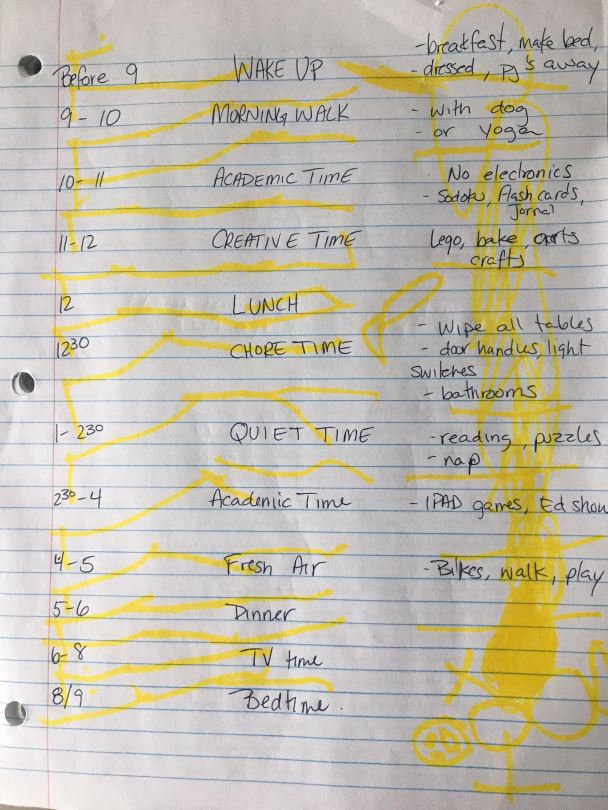 Before 9 WAKE UP -breakfast, make bed,
- dressed, PJ's away
9-10 MORNING WALK - with dog
- or yoga
10-11 ACADEMIC TIME . No electronics
- Sodoku, flash cards,
Jornel
11-12 CREATIVE TIME Lego, bake, arts
crafts
12 LUNCH
1230 CHORE TIME - Wipe all tables
- door handles, light
switches
- bathrooms
1-230 QUIET TIME -reading, puzzles
- nap
230-4 Academic Time - IPAD games, Ed show
4-5 Fresh Air -Bikes, walk, play
5-6 Dinner
6-8 TV time
8/9 Bedtime.